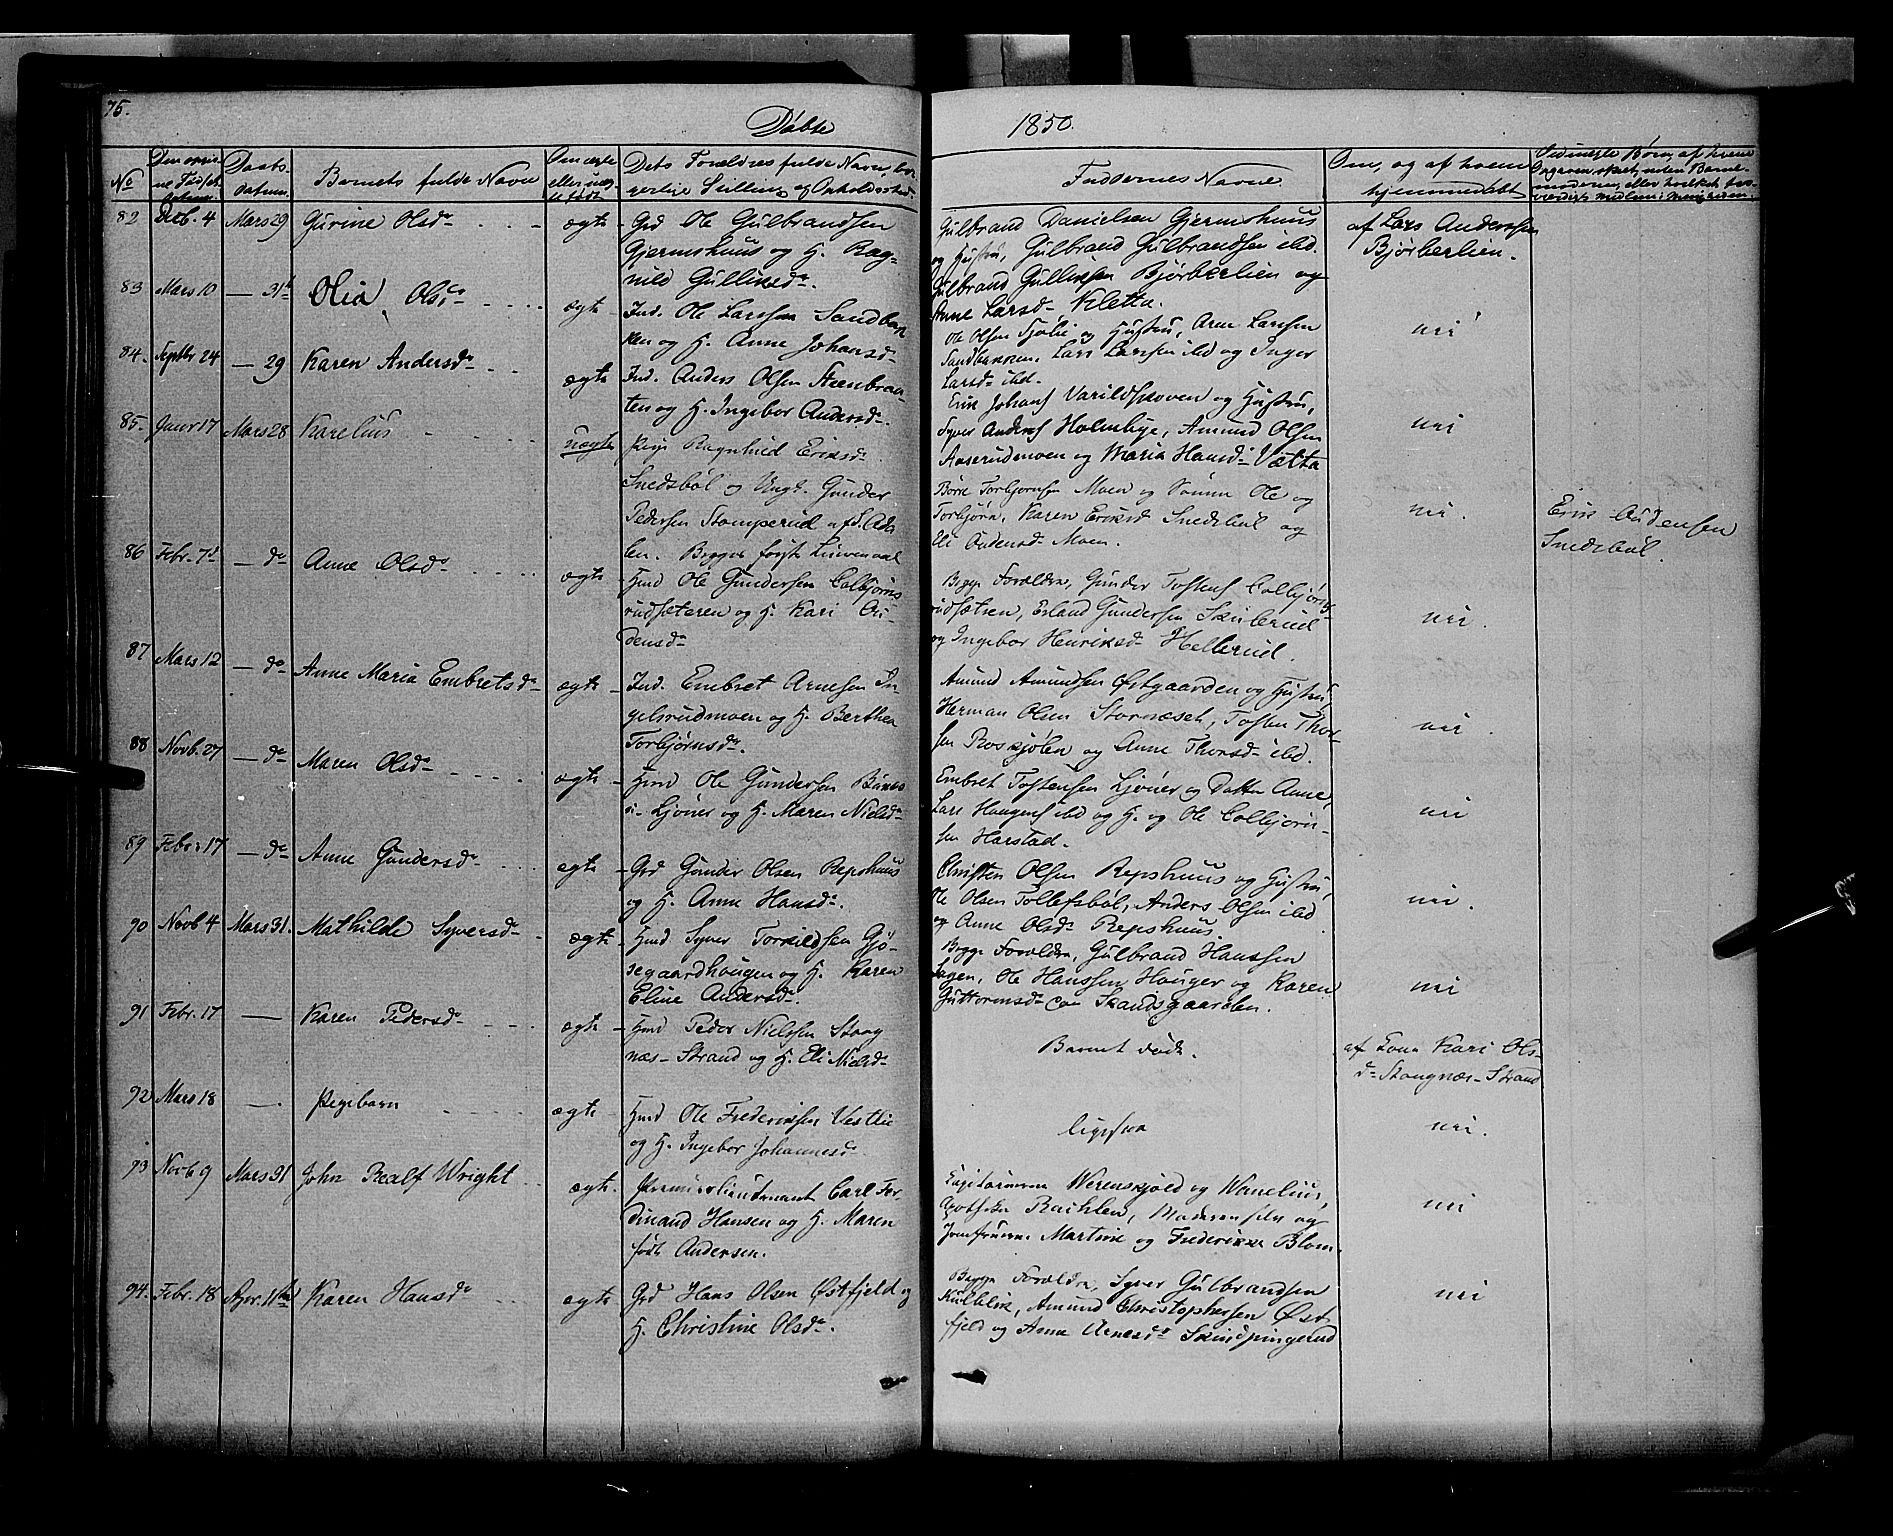 75.
Døbte
1850.
No
Daabs-
datum.
Barnets fulde Navn
Om ægte
Dets Forældres fulde Navn, bor-
gerlige Stilling og Opholdssted.
Faddernes Navne.
Om, og af hvem
hjemmedøbt
82 Febr. 4 Mars 29 Gurine Olsdr ægte Grd Ole Gulbrandsen
Gjermshuus og H. Rag-
nild Gulliksdr.
Gulbrand Danielsen Gjermshuus
og Hustru, Gulbrand Gulbrandsen ibd.
Gulbrand Gulliksen Bjørberlien og
Anne Larsdr Kletta.
af Lars Anderssen
Bjørberlien.
83 Mars 10 — 31te Olia Olsdr ægte Ind. Ole Larssen Sandbak-
ken og H. Anne Johansdr
Ole Olsen Sjølie og Hustru, Arne Larssen
Sandbakken, Lars Larssen ibd og Inger
Larsdr ibd.
nei
84. Septbr 24 — 29 Karen Andersdr ægte Ind. Anders Olsen Steenbraa-
ten og H. Ingebor Andersdr.
Erik Johans Varildskoven og Hustru,
Syver Anders Holmbye, Amund Olsen
Aaserudmoen og Maria Hansdr Vætta
nei
85. Janr 17 Mars 28 Karelius uægte Pige Ragnhild Eriksdr
Snedsbøl og Ungk. Gunder
Pedersen Stamperud af S. Ada-
len. Begges første Leiermaal
Børe Torbjørnsen Moen og Sønner Ole og
Torbjørn, Karen Eriksdr Snedsbøl og
Eli Audensdr Moen.
nei.
Erik Audensen
Snedsbøl.
86 Febr. 7de — do Anne Olsdr ægte Hmd Ole Gundersen Colbjørns-
rudseteren og H. Kari Au-
densdr
Begge Forældre, Gunder Tostens Colbjørns-
rudsætren, Erland Gundersen Skulerud
og Ingebor Henriksdr Hellerud.
nei.
87 Mars 12 — do Anne Maria Embretsdr ægte Ind. Embret Arnesen In-
gelsrudmoen og H. Berthea
Torbjørnsdr.
Amund Amundsen Østgaarden og Hustru,
Herman Olsen Stornæset, Tosten Thor-
sen Roskjølen og Anne Thorsdr ibd.
nei.
88 Novb. 27 — do Maren Olsdr ægte Hmd Ole Gundersen
Ljøner og H. Maren Nielsdr
Embret Tostensen Ljøner og Datter Anne,
Lars Haagens ibd og H. og Ole Colbjørn-
sen Harstad.
nei
89 Febr. 17 — do Anne Gundersdr ægte Grd Gunder Olsen Repshuus
og H. Anne Hansdr.
Christen Olsen Repshuus og Hustru,
Ole Olsen Tollefsbøl, Anders Olsen ibd
og Anne Olsdr Repshuus
nei.
90 Novb 4 Mars 31. Mathilde Syversdr ægte Hmd Syver Torkildsen Gjø-
segaardhaugen og H. Karen
Eline Andersdr.
Begge Forældre, Gulbrand Hanssen
Hagen, Ole Hanssen Hauger og Karen
Guttormsdr Skandsgaarden.
nei
91 Febr. 17 — Karen Pedersdr ægte Hmd Peder Nielssen Stang
næs-Strand og H. Eli Nielsdr
Barnet døde.
af Kone Kari Ols-
dr Stangnæs-Strand
92 Mars 18 — Pigebarn ægte Hmd Ole Frederiksen Vestlie
og H. Ingebor Johannesdr
ligesaa
nei.
93 Novb 9 Mars 31 John Realf Wright ægte Premierlieutenant Carl Fer-
dinand Hansen og H. Maren
født Andersen.
Capitainerne Werenskjold og Wamelius,
Apotheker Moderen selv og
Jomfruerne Martine og Frederikke Blom.
nei
94. Febr. 18 Apr. 11te Karen Hansdr ægte Grd Hans Olsen Østfjeld og
H. Christine Olsdr.
Begge Forældre, Syver Gulbrandsen
Kulblik, Amund Christophersen Øst-
fjeld og Anne Arnesdr Skindpungrud
nei